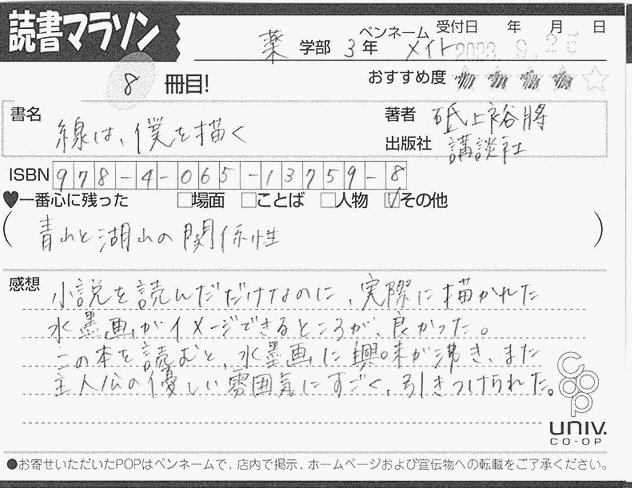 読書マラソン
薬 学部 3年 ペンネーム メイト 受付日 年 月 日
8 冊目!
おすすめ度 ★★★★☆
書名 線は、僕を描く
著者 砥上裕將
出版社 講談社
ISBN 978-4-065-13759-8
♥一番心に残った □場面 □ことば □人物 ☑その他
(青山と湖山の関係性)
感想 小説を読んだだけなのに、実際に描かれた
水墨画がイメージできるところが、良かった。
この本を読むと、水墨画に興味が沸き、また
主人公の優しい雰囲気にすごく、引きつけられた。
coop
UNIV.
CO-OP
●お寄せいただいたPOPはペンネームで、店内で掲示、ホームページおよび宣伝物への転載をご了承ください。